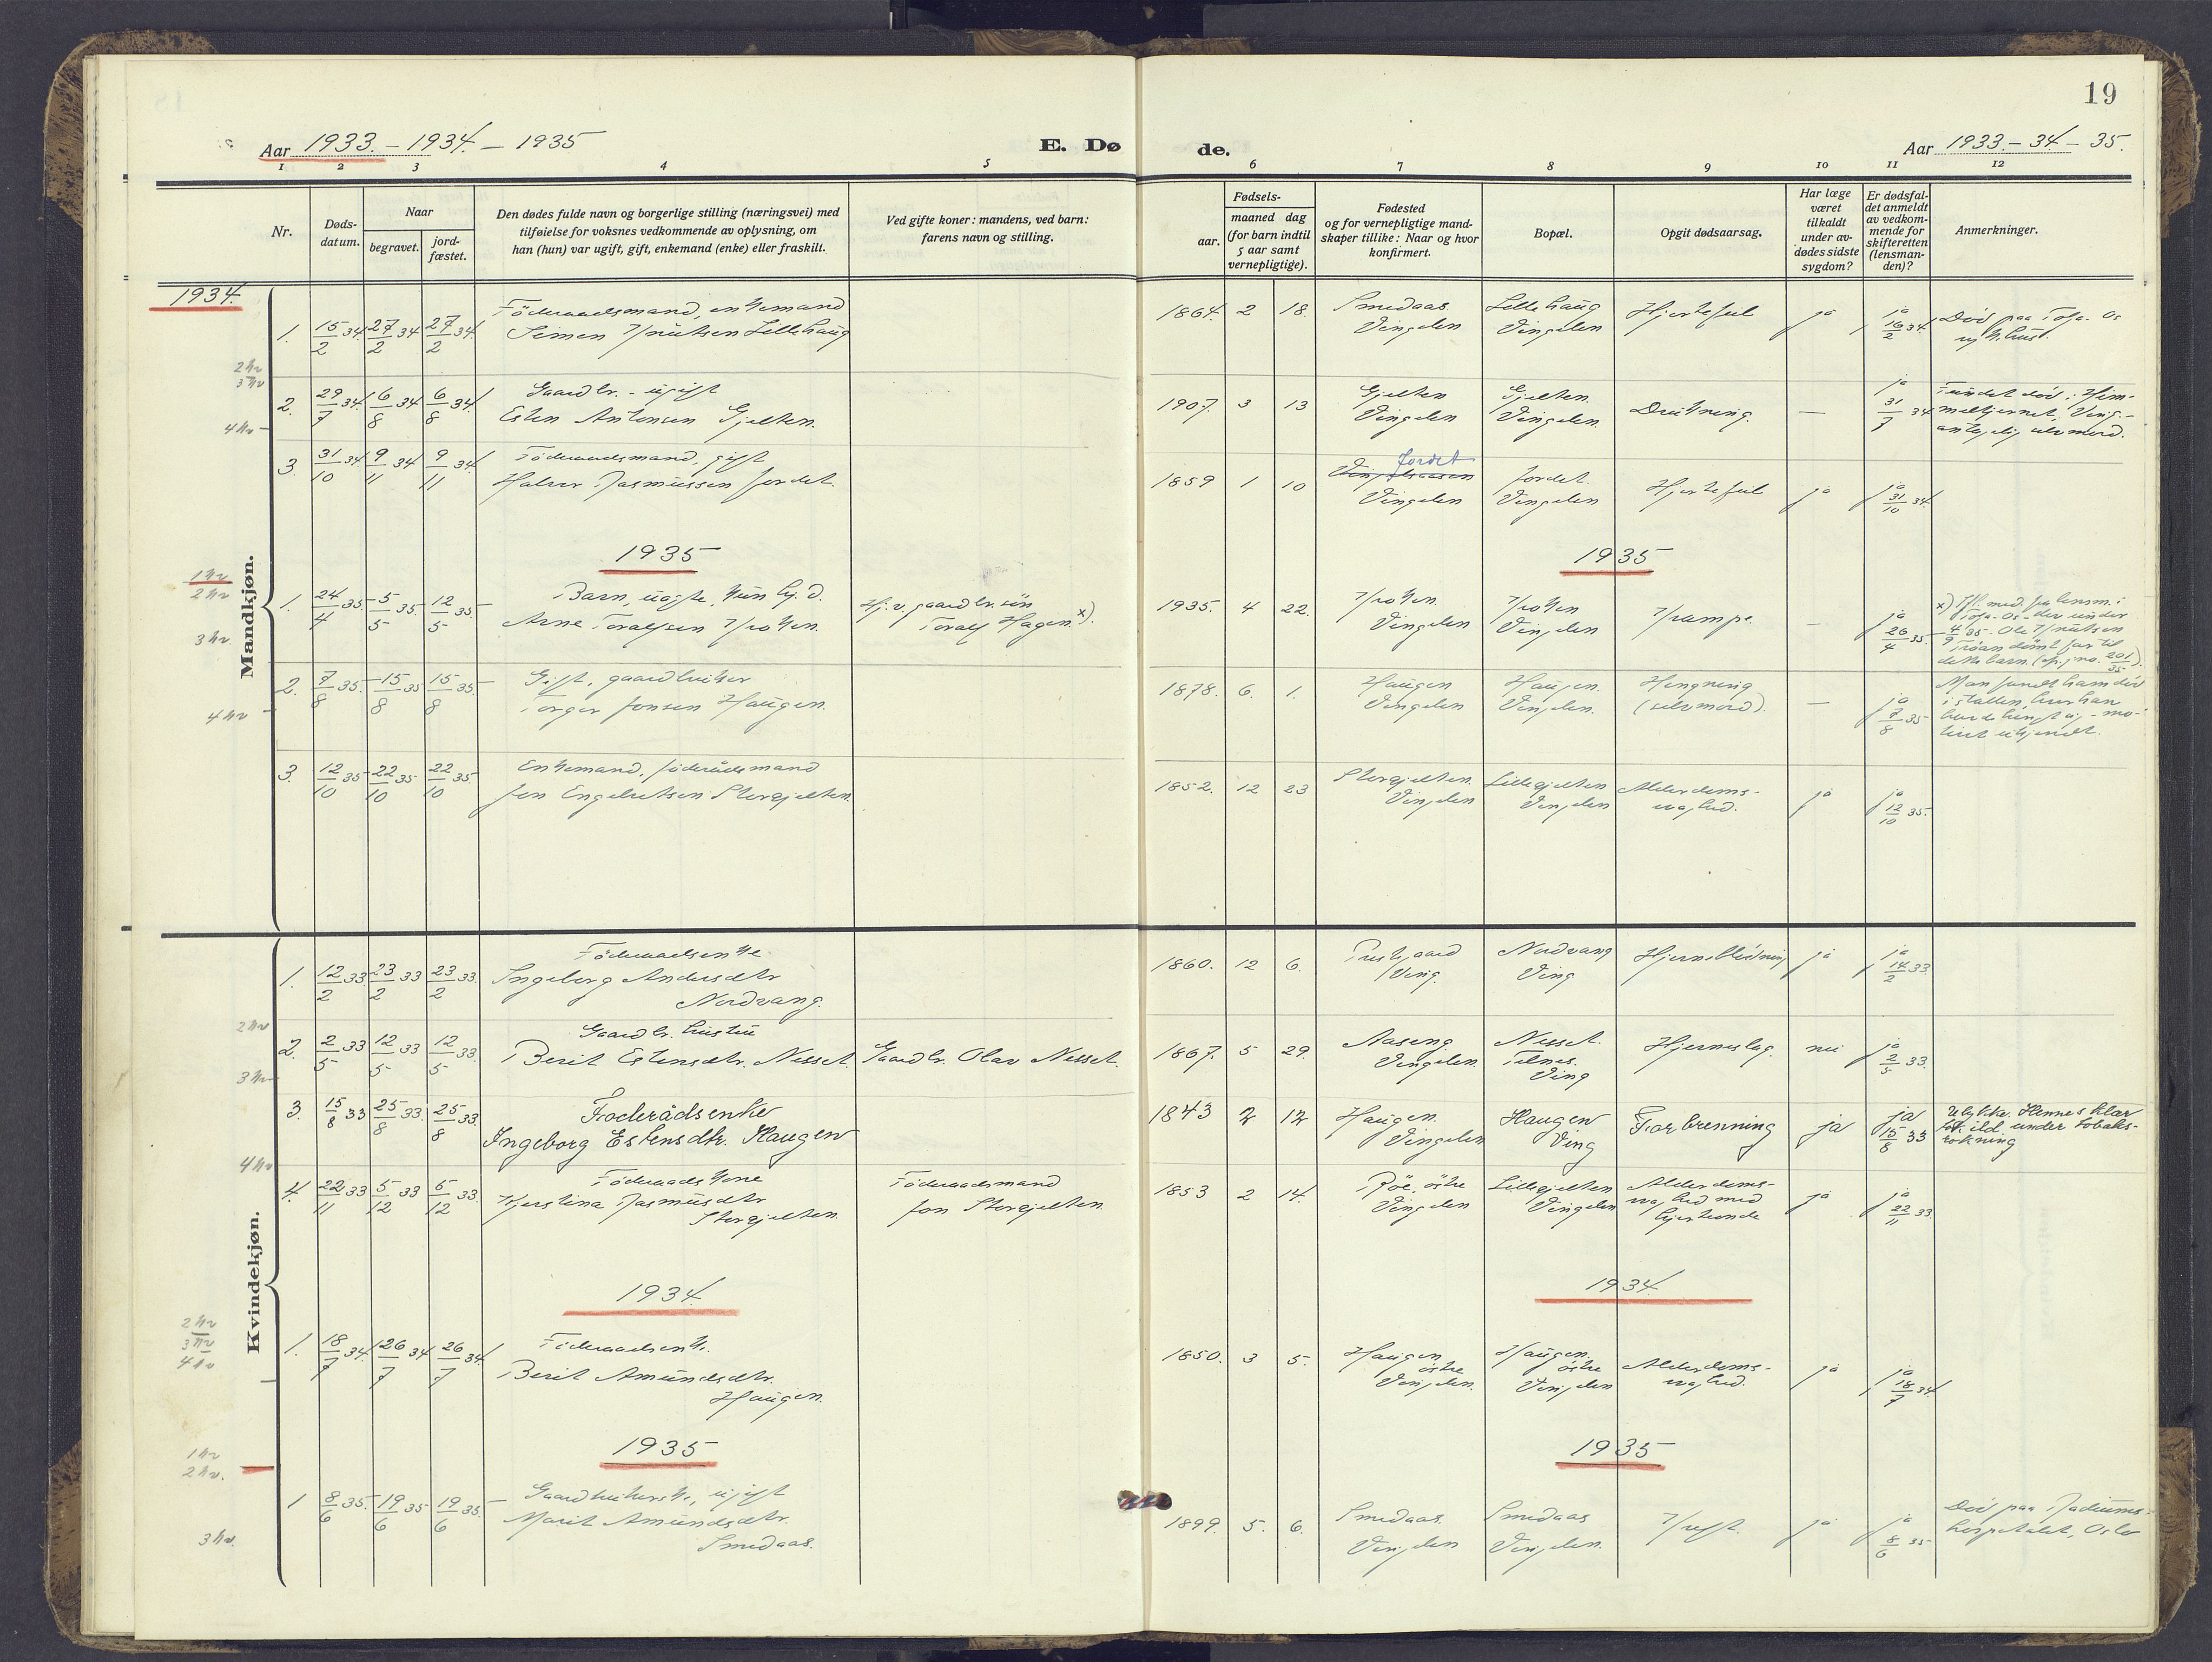 19
Aar 1933.-1934.-1935
E. Dø
de.
Aar 1933.-34-35.
1 2 3 4 5 6 7 8 9 10 11 12
Nr.
Døds-
datum.
Naar
begravet.
jord-
fæstet.
Den dødes fulde navn og borgerlige stilling (næringsvei) med
tilføielse for voksnes vedkommende av oplysning, om
han (hun) var ugift, gift, enkemand (enke) eller fraskilt.
Ved gifte koner: mandens, ved barn:
farens navn og stilling.
Fødsels-
aar.
maaned dag
(for barn indtil
5 aar samt
vernepligtige).
Fødested
og for vernepligtige mand-
skaper tillike: Naar og hvor
konfirmert.
Bopæl.
Opgit dødsaarsag.
Har læge
været
tilkaldt
under av-
dødes sidste
sygdom?
Er dødsfal-
det anmeldt
av vedkom-
mende for
skifteretten
(lensman-
den)?
Anmerkninger.
Mandkjøn.
1934.
1. 15/2 34. 27/2 34 27/2 34.
Föderaadsmand, enkemand
Simen Knutsen Lillehaug
1864. 2 18.
Smedaas
Vingelen
Lillehaug
Vingelen
Hjertefeil
ja
ja
16/2 34.
Död paa Tolga-Os
sykehus.
2 kv
3 kv
2. 29/7 34. 6/8 34 6/8 34.
Gaardbr. - ugift
Esten Antonsen Gjelten.
1907. 3 13
Gjelten
Vingelen
Gjelten.
Vingelen.
Drukning.
—
ja
31/7 34
Fundet död i Him-
meltjernet, Ving.-
antagelig selvmord.
4 kv
3. 31/10 34 9/11 34 9/11 34.
Föderaadsmand, gift
Halvor Rasmussen Jordet.
1859 1 10
Jordet
Vingelen
Jordet.
Vingelen
Hjertefeil
ja
ja
31/10 34.
1935
1935
1 kv
2 kv
1. 24/4 35. 5/5 35. 12/5 35
Barn, uægte, hun hj. d.
Arne Toralfsen Kroken.
Hj. v. gaardbr. sön
Toralf Hagen. x).
1935. 4 22.
Kroken.
Vingelen
Kroken
Vingelen
Krampe.
—
ja
26/4 35
x) Ifl. med. fra lensm. i
Tolga-Os- der under
4/9 35- Ole Knutsen
Tröan dömt far til
dette barn. (cfr. j.no. 201/35).
3 kv
2. 7/8 35. 15/8 35 15/8 35.
Gift, gaardbruker
Torger Jonsen Haugen.
1878. 6. 1.
Haugen
Vingelen
Haugen.
Vingelen.
Hengning
(selvmord).
—
ja
7/8 35
Man fandt ham död
i stallen, hvor han
havde hengt sig - mo-
tivet ukjendt.
4 kv
3. 12/10 35 22/10 35 22/10 35
Enkemand, föderådsmand
Jon Engebretsen Storgjelten.
1852. 12 23
Storgjelten.
Vingelen
Lillegjelten
Vingelen
Alderdoms-
svaghed.
ja
ja
12/10 35.
Kvindekjøn.
1. 12/2 33 23/2 33 23/2 33.
Föderaadsenke
Ingeborg Andersdtr
Nordvang.
1860. 12 6.
Prestgaard
Ving.
Nordvang
Ving
Hjerneblödning
ja
ja
14/2 33
2 kv
2. 2/5 33 12/5 33 12/5 33.
Gaardbr. hustru
Berit Estensdtr. Nesset.
Gaardbr. Olav Nesset.
1867. 5 29.
Aaseng
Vingelen.
Nesset.
Tolnes.
Ving
Hjerneslag.
nei
ja
2/5 33.
3 kv
3. 15/8 33 25/8 33. 25/8 33
Foderådsenke
Ingeborg Estensdtr. Haugen
1843 12
Haugen.
Vingelen
Haugen
Ving
Forbrenning
ja
ja
15/8 33
Ulykke. Hennes klær
tok ild under tobaks-
rökning
4 kv
4. 22/11 33 5/12 33 5/12 33.
Föderaads kone
Kjerstina Rasmusdtr
Storgjelten.
Föderaadsmand
Jon Storgjelten.
1853 2 14.
Röe, östre
Vingelen
Lillegjelten
Vingelen
Alderdoms-
svaghed med
hjerteonde
ja
ja
22/11 33.
1934.
1934.
2 kv
3 kv
4 kv
1. 18/7 34. 26/7 34 26/7 34.
Föderaadsenke.
Berit Amundsdtr.
Haugen.
1850. 3 5.
Haugen
östre
Vingelen.
Haugen.
östre
Vingelen
Alderdoms-
svaghed.
ja
ja
18/7 34.
1935
1935
1 kv
2 kv.
1 8/6 35. 19/6 35 19/6 35.
Gaardbrukerske, ugift
Marit Amundsdtr.
Smedaas.
1899. 5. 6.
Smedaas.
Vingelen
Smedaas
Vingelen.
Kreft.
ja
ja
8/6 35
Död paa Radiums-
hospitalet, Oslo
3 kv.